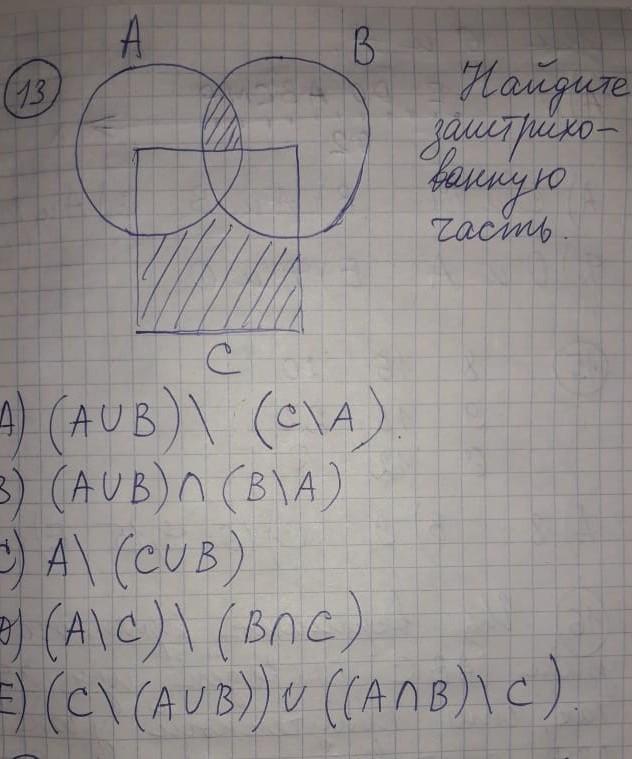 A
B
13
Найдите
заштрихо-
ванную
часть.
C
A) (A∪B)\ (C\A).
B) (A∪B)∩(B\A)
C) A\(C∪B)
D) (A\C)\(B∩C)
E) (C\(A∪B))∪((A∩B)\C).